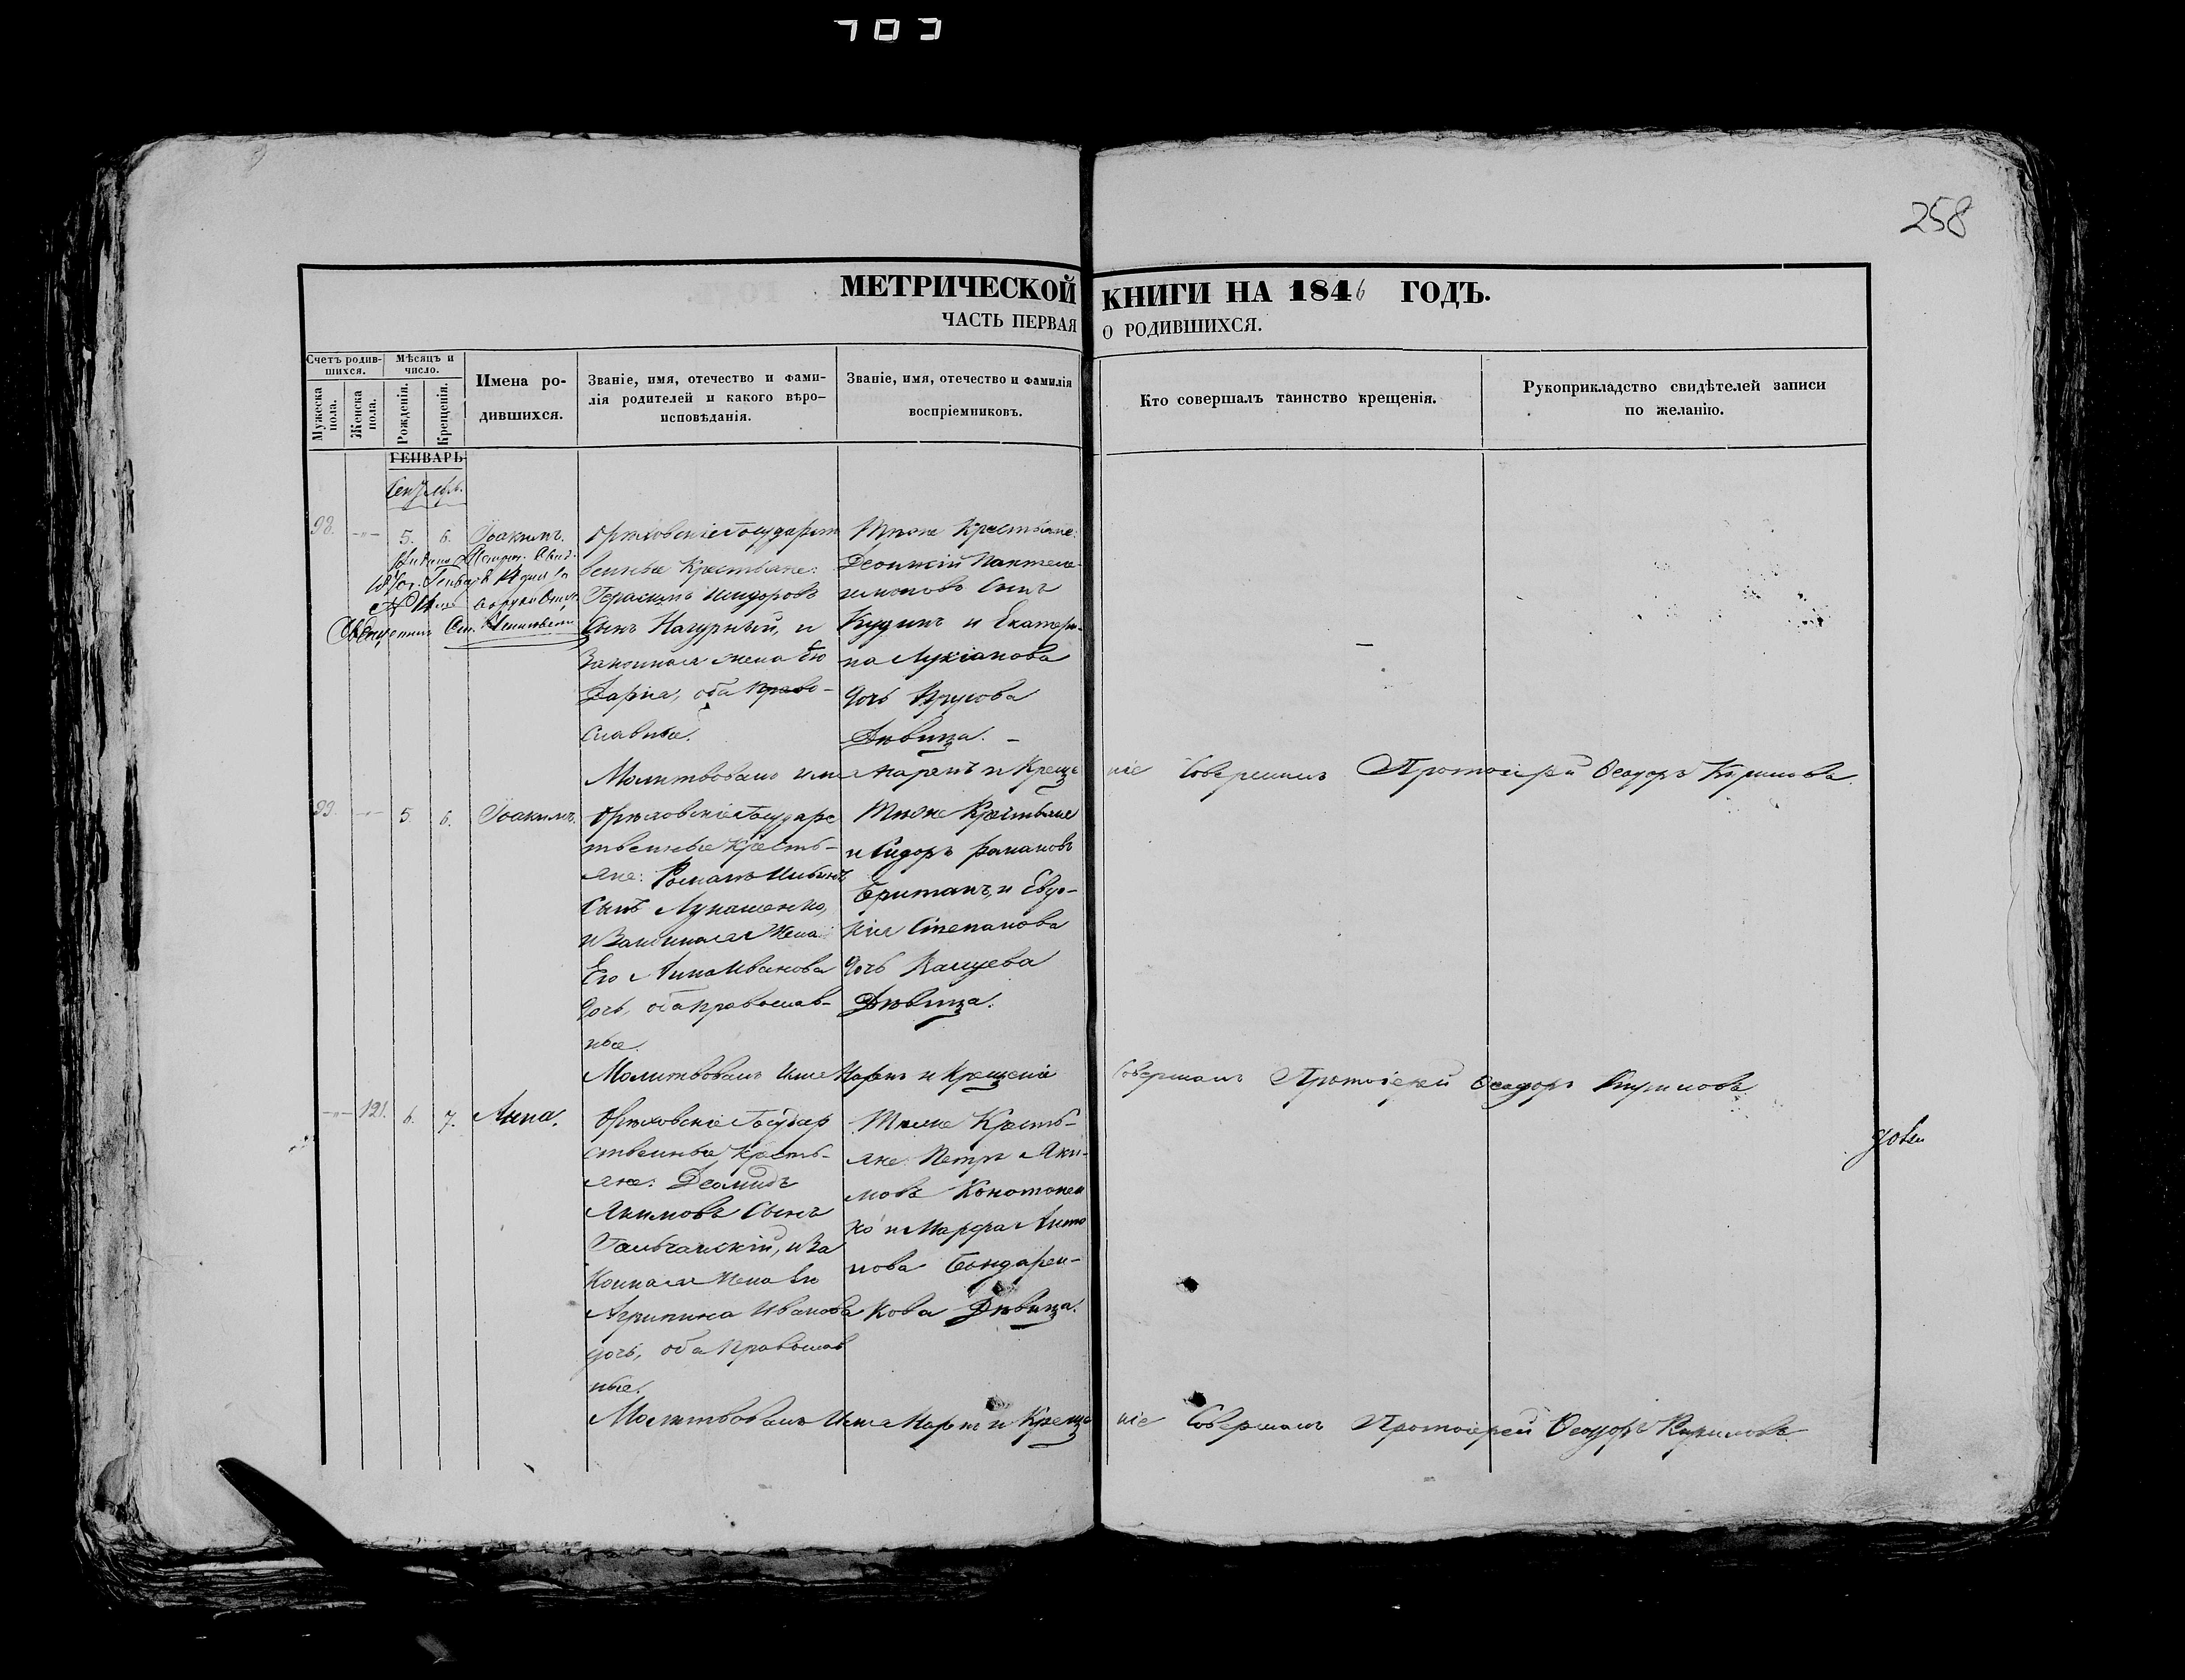 703
258
МЕТРИЧЕСКОЙ КНИГИ НА 1846 ГОДЪ.
ЧАСТЬ ПЕРВАЯ О РОДИВШИХСЯ.
Счетъ родившихся.
Мужеска пола.
Женска пола.
Мѣсяцъ и число.
Рожденія.
Крещенія.
Имена родившихся.
Званіе, имя, отечество и фамилія родителей и какого вѣроисповѣданія.
Званіе, имя, отечество и фамилія воспріемниковъ.
Кто совершалъ таинство крещенія.
Рукоприкладство свидѣтелей записи по желанію.
ГЕНВАРЬ
98.
-"-
5.
6.
Іоакимъ.
Орѣховскіе Государст
венные Крестьяне:
Герасимъ Исидоровъ
Сынъ Нагурный, и
Законная жена Его
Дарія, оба право-
славные.
Тѣже Крестьяне:
Пантеле
имоновъ Сынъ
Кудинъ и Екатери-
на Лукіанова
дочь
Дѣвица. -
Молитвовалъ имя нарекъ и Креще
ніе Совершилъ Протоіерей Ѳеодоръ Кириловъ.
99.
-"-
5.
6.
Іоакимъ.
Орѣховскіе Государс
твенные Кресть-
яне: Романъ Ильинъ
Сынъ Лукашенко,
и Законная жена
Его Анна Иванова
дочь, оба православ-
ные.
Тѣже Крестьяне
Исидоръ Романовъ
Бритапъ, и Евдо-
кія Степанова
дочь
Дѣвица.
Молитвовалъ Имя Нарекъ и Крещеніе
Совершалъ Протоіерей Ѳеодоръ Кириловъ
-"-
121.
6.
7.
Анна.
Орѣховскіе Государ
ственные Кресть-
яне: Деомидъ
Якимовъ Сынъ
и за
конная жена Его
Агрипина Иванова
дочь, оба православ
ные.
Тѣже Кресть-
яне: Петръ Яки-
мовъ Конотопен
ко и Марфа Анто
нова Бондарен-
кова Дѣвица.
Молитвовалъ Имя Нарекъ и Креще
ніе Совершалъ Протоіерей Ѳеодоръ Кириловъ